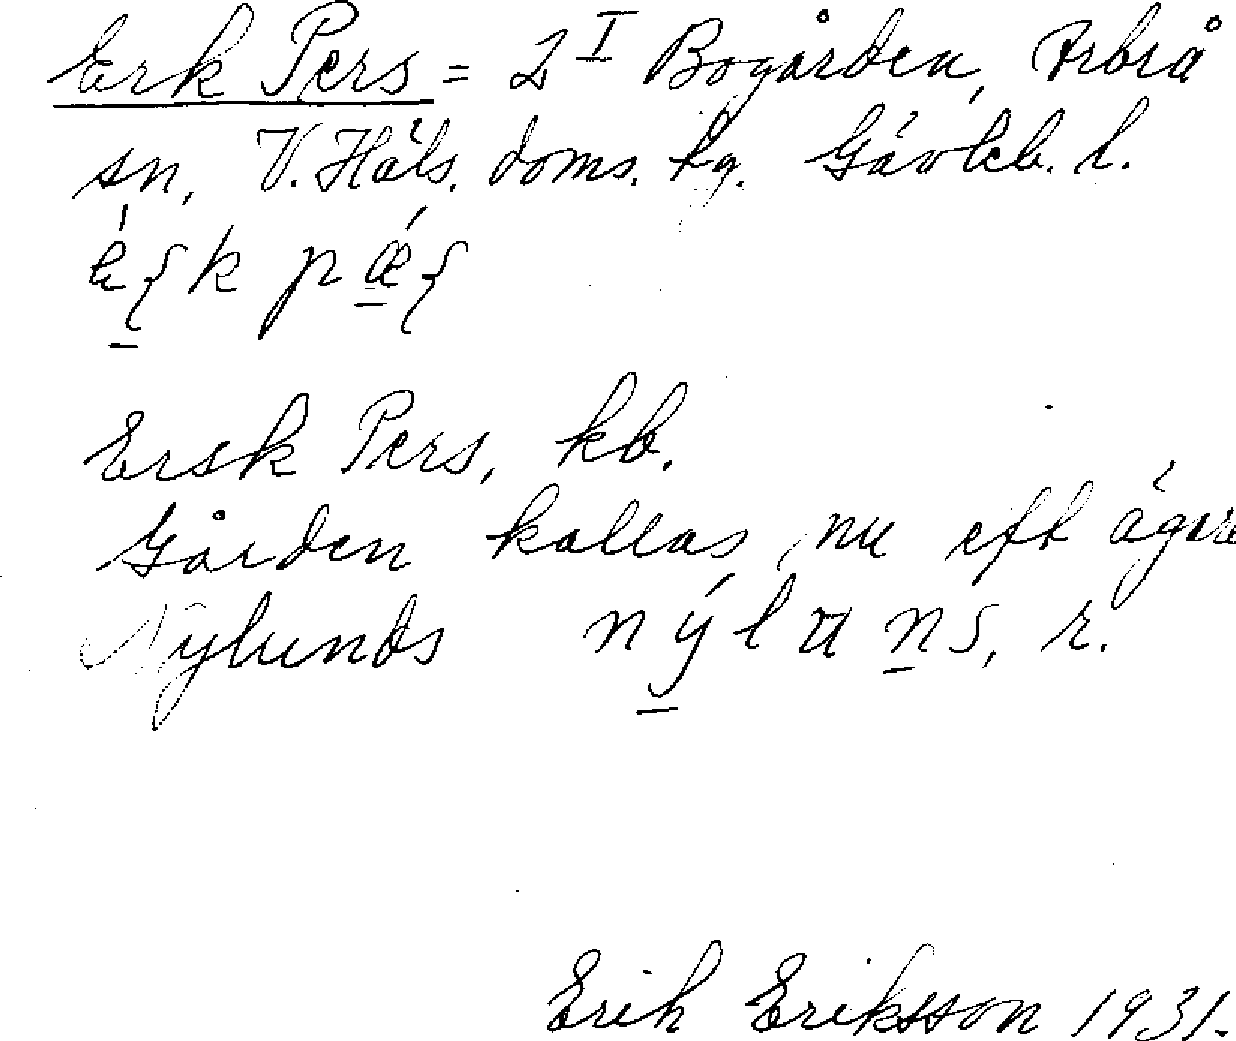 Erk Pers = 2 I Bogården, Arbrå
sn, V. Häls. doms. hg. Gävleb. l.
Ersk Pers, kb.
Gården kallas nu eft ägare
Nylunds nýluns, r.
Erik Eriksson 1931.